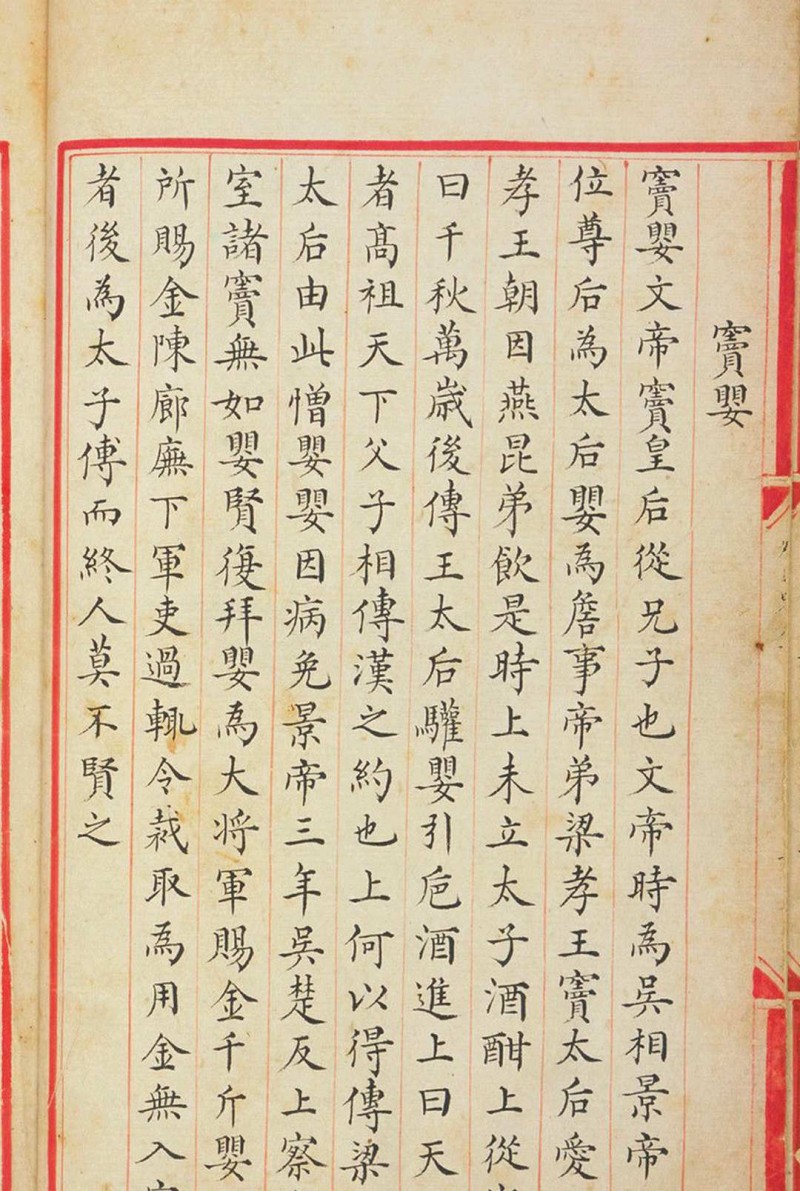 竇嬰
竇嬰文帝竇皇后從兄子也文帝時為吳相景帝
位尊后為太后嬰為詹事帝弟梁孝王竇太后愛
孝王朝因燕昆弟飲是時上未立太子酒酣上從
曰千秋萬歲後傳王太后驩嬰引卮酒進上曰天
者髙祖天下父子相傳漢之約也上何以得傳梁
太后由此憎嬰嬰因病免景帝三年吳楚反上察
室諸竇無如嬰賢復拜嬰為大將軍賜金千斤嬰
所賜金陳廊廡下軍吏過輒令裁取為用金無入
者後為太子傅而終人莫不賢之